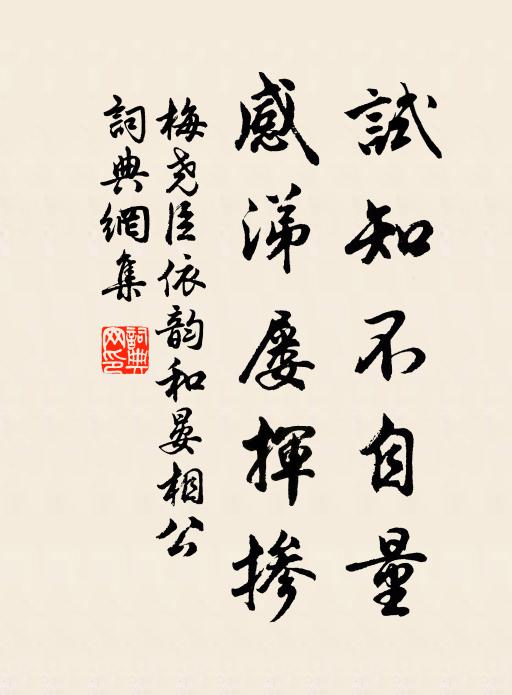 試知不自量
感涕屡揮掺
梅尭臣依韵和晏相公
詞典網集
詞典網印